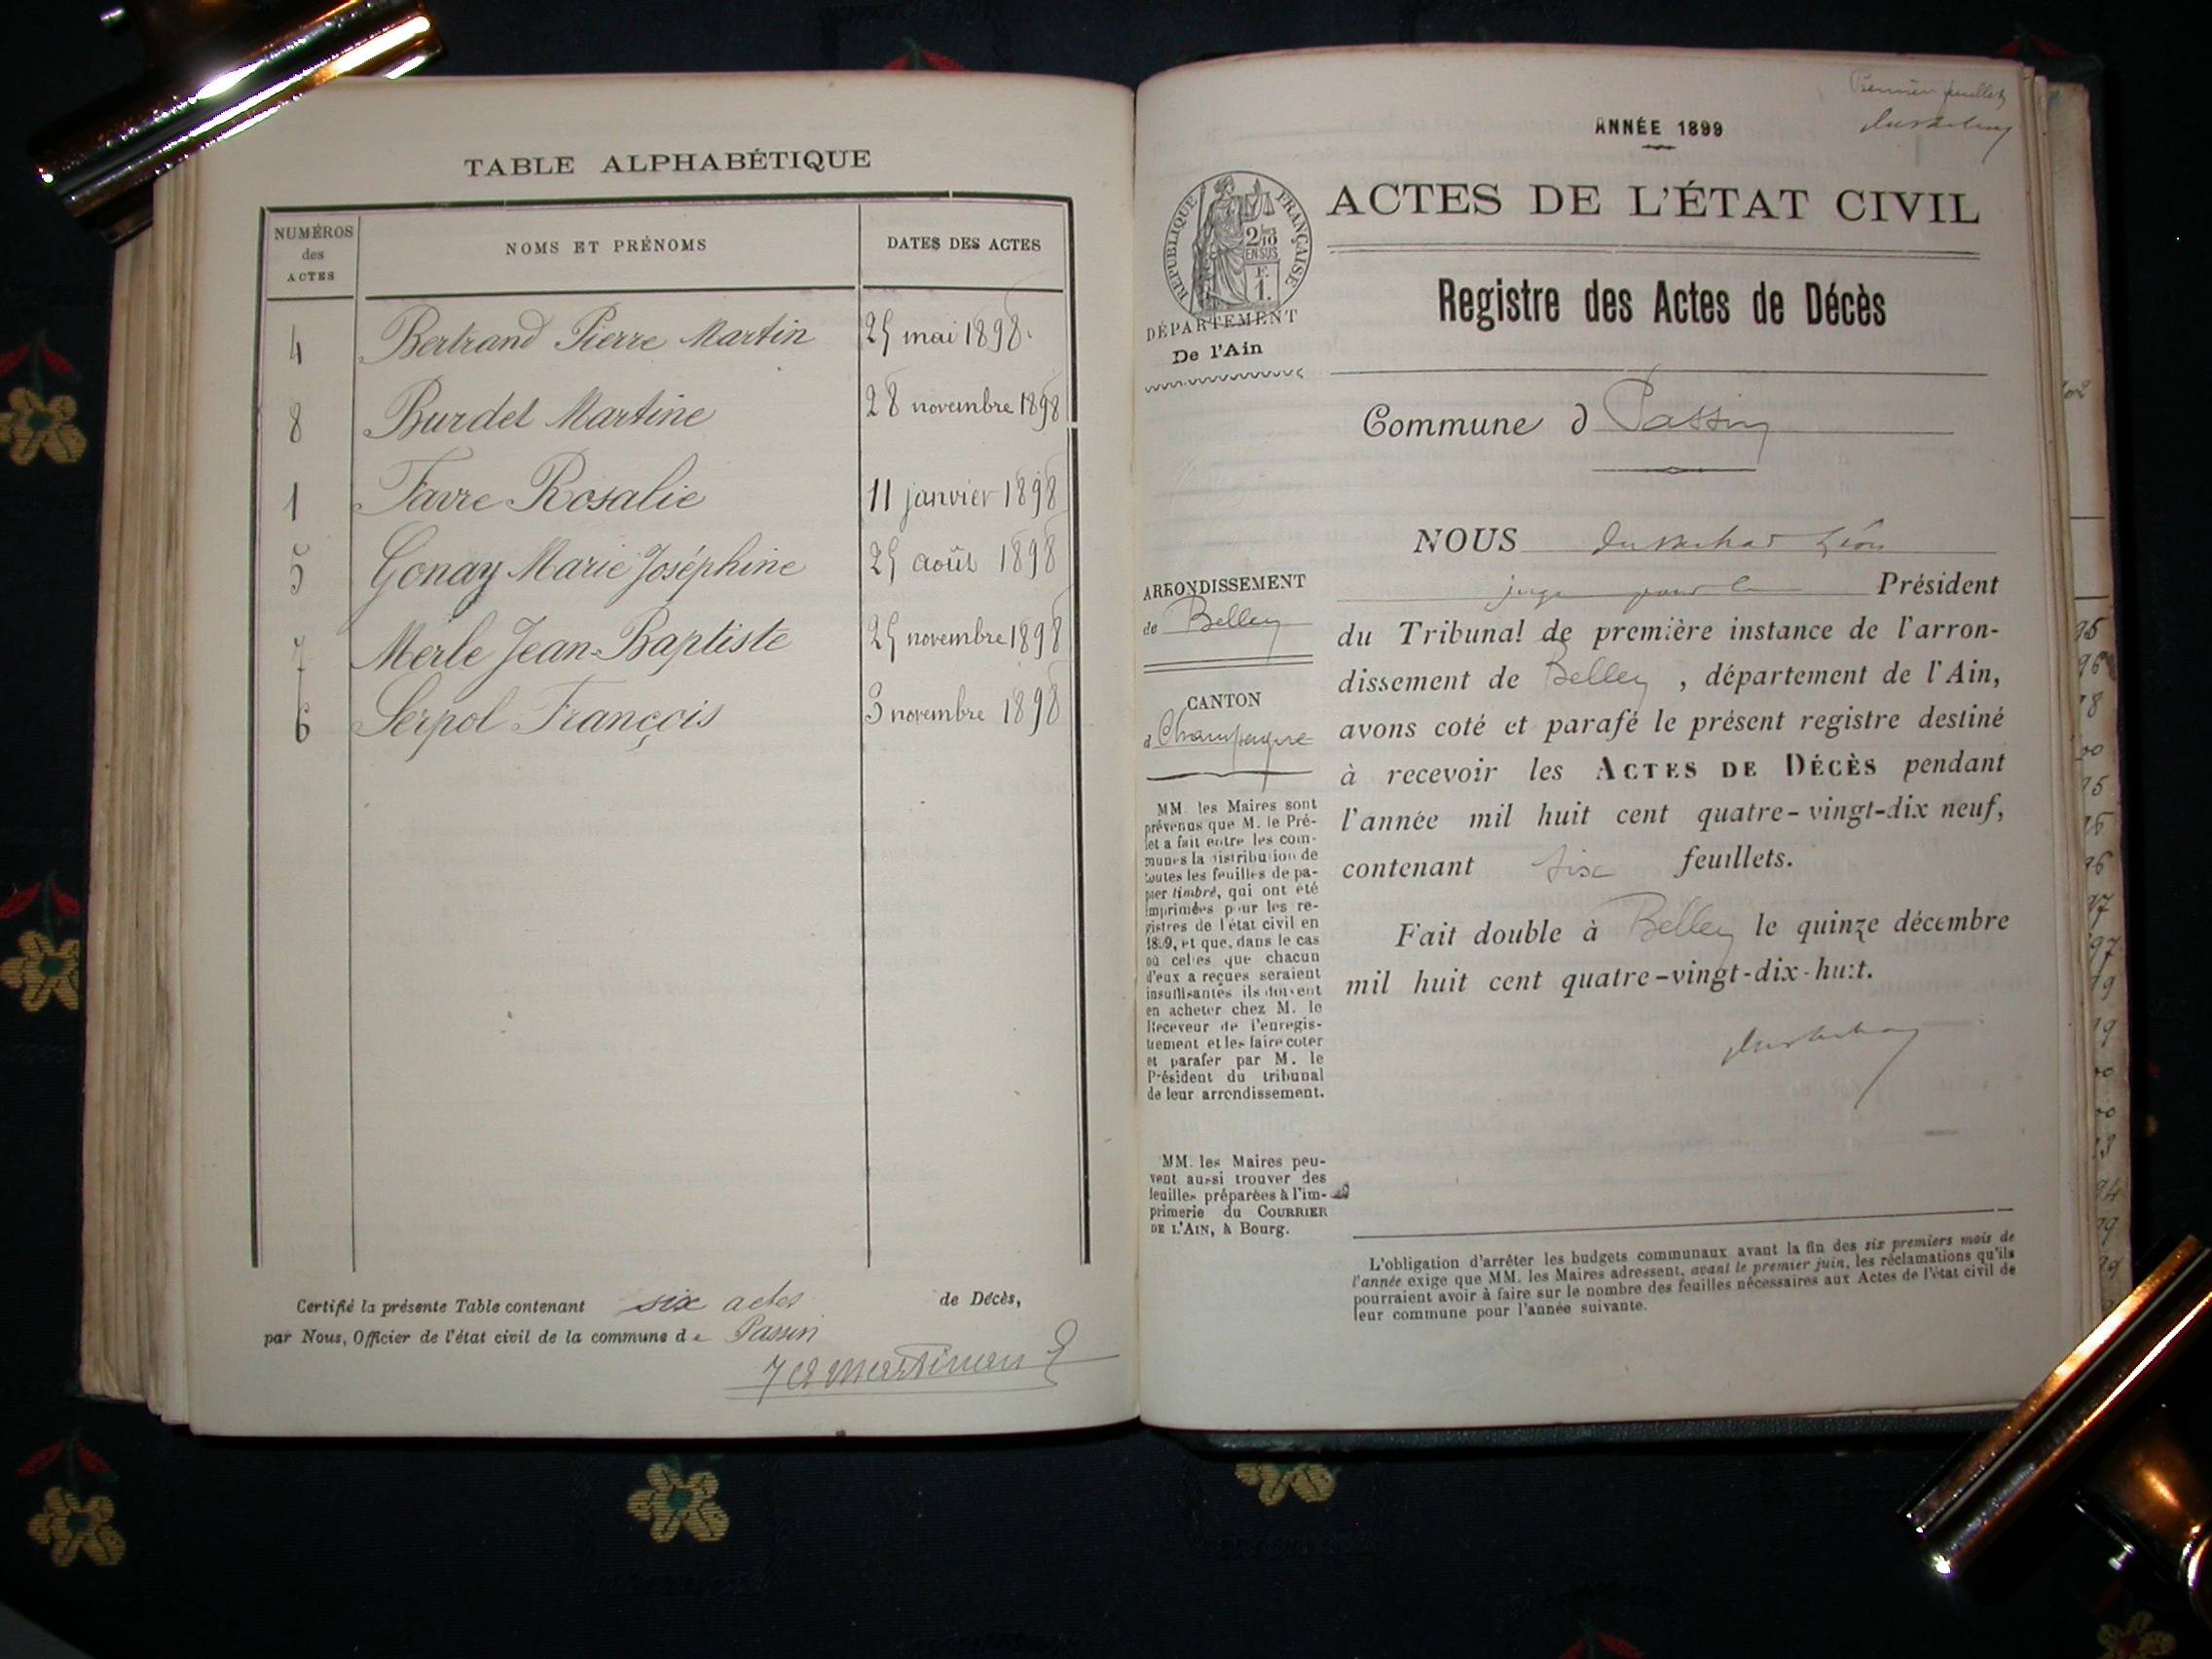 TABLE ALPHABÉTIQUE
NUMÉROS
des
ACTES
NOMS ET PRÉNOMS
DATES DES ACTES
4 Bertrand Pierre Martin 25 mai 1898.
8 Burdet Martine 28 novembre 1898
1 Favre Rosalie 11 janvier 1898
5 Gonay Marie Joséphine 25 août 1898
7 Merle Jean-Baptiste 25 novembre 1898
6 Serpol François 3 novembre 1898
Certifié la présente Table contenant six actes de Décès,
par Nous, Officier de l'état civil de la commune de Passin
Premier feuillet
ANNÉE 1899
ACTES DE L'ÉTAT CIVIL
RÉPUBLIQUE FRANÇAISE
2/10
EN SUS
F.
1.
DÉPARTEMENT
De l'Ain
Registre des Actes de Décès
Commune d Passin
ARRONDISSEMENT
de Belley
CANTON
d Champagne
MM. les Maires sont
prévenus que M. le Pré-
fet a fait entre les com-
munes la distribution de
toutes les feuilles de pa-
pier timbré, qui ont été
imprimées pour les re-
gistres de l'état civil en
1899, et que, dans le cas
où celles que chacun
d'eux a reçues seraient
insuffisantes ils doivent
en acheter chez M. le
Receveur de l'enregis-
trement et les faire coter
et parafer par M. le
Président du tribunal
de leur arrondissement.
MM. les Maires peu-
vent aussi trouver des
feuilles préparées à l'im-
primerie du COURRIER
DE L'AIN, à Bourg.
NOUS Léon
juge pour le Président
du Tribunal de première instance de l'arron-
dissement de Belley, département de l'Ain,
avons coté et parafé le présent registre destiné
à recevoir les ACTES DE DÉCÈS pendant
l'année mil huit cent quatre-vingt-dix neuf,
contenant six feuillets.
Fait double à Belley le quinze décembre
mil huit cent quatre-vingt-dix-huit.
L'obligation d'arrêter les budgets communaux avant la fin des six premiers mois de
l'année exige que MM. les Maires adressent, avant le premier juin, les réclamations qu'ils
pourraient avoir à faire sur le nombre des feuilles nécessaires aux Actes de l'état civil de
leur commune pour l'année suivante.